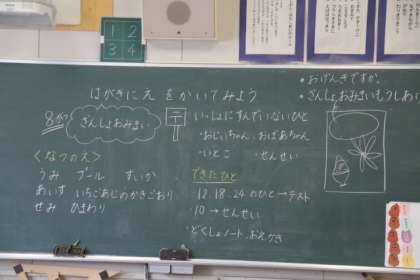 1 2
3 4
はがきにえをかいてみよう
・おげんきですか。
・ざんしょおみまいもうしあげ
8がつ
ざんしょおみまい
〒
いっしょにすんでいないひと
・おじいちゃん、おばあちゃん
・いとこ ・せんせい
<なつのえ>
うみ プール すいか
あいす いちごあじのかきごおり
せみ ひまわり
できたひと
12.18.24のひと→テスト
10→せんせい
・どくしょノート、おえかき